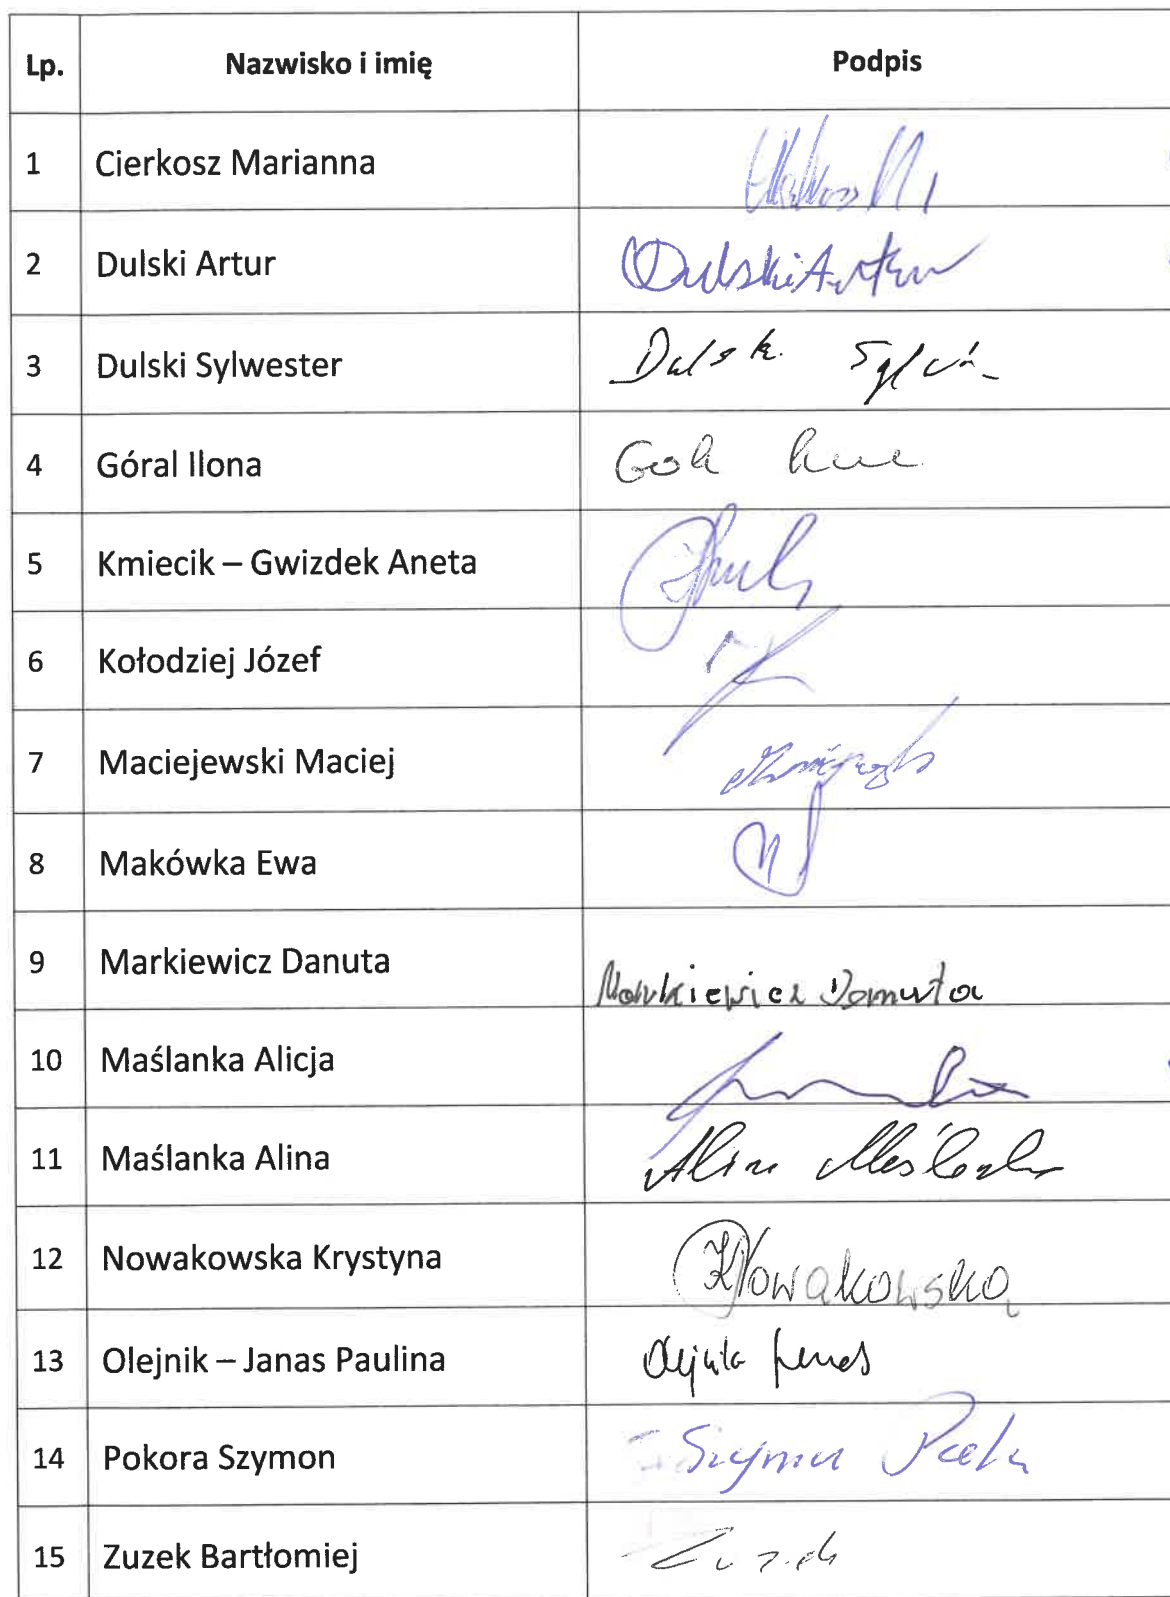 Lp. Nazwisko i imię Podpis
1 Cierkosz Marianna
2 Dulski Artur Dulski Artur
3 Dulski Sylwester
4 Góral Ilona
5 Kmiecik – Gwizdek Aneta
6 Kołodziej Józef
7 Maciejewski Maciej
8 Makówka Ewa
9 Markiewicz Danuta Markiewicz Danuta
10 Maślanka Alicja
11 Maślanka Alina Alina Maślanka
12 Nowakowska Krystyna KNowakowska
13 Olejnik – Janas Paulina
14 Pokora Szymon Szymon
15 Zuzek Bartłomiej Zuzek